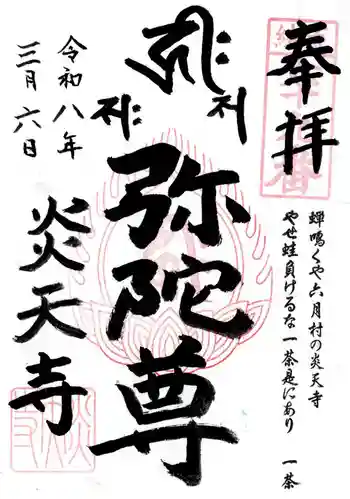 奉拝
蝉鳴くや六月村の炎天寺
やせ蛙負けるな一茶是にあり 一茶
弥陀尊
令和八年
三月六日
炎天寺